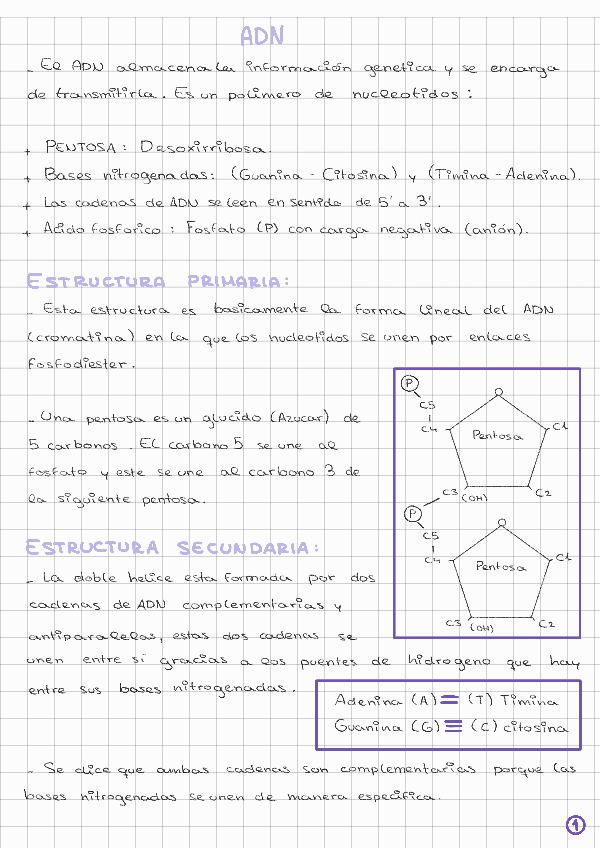 ADN
- El ADN almacena la información genetica y se encarga
de transmitirla. Es un polimero de nucleotidos:
+ PENTOSA: Desoxirribosa.
+ Bases nitrogenadas: (Guanina - Citosina) y (Timina - Adenina).
+ Las cadenas de ADN se leen en sentido de 5' a 3'.
+ Acido fosforico: Fosfato (P) con carga negativa (anión).
ESTRUCTURA PRIMARIA:
- Esta estructura es basicamente la forma lineal del ADN
(cromatina) en la que los nucleotidos se unen por enlaces
fosfodiester.
- Una pentosa es un glucido (Azucar) de
5 carbonos. El carbono 5 se une al
fosfato y este se une al carbono 3 de
la siguiente pentosa.
P
O
C5
C4
Pentosa
C1
C3
(OH)
C2
P
O
C5
C4
Pentosa
C1
C3
(OH)
C2
ESTRUCTURA SECUNDARIA:
- La doble helice esta formada por dos
cadenas de ADN complementarias y
antiparalelas, estas dos cadenas se
unen entre sí gracias a los puentes de hidrogeno que hay
entre sus bases nitrogenadas.
Adenina (A) = (T) Timina
Guanina (G) ≡ (C) citosina
- Se dice que ambas cadenas son complementarias porque las
bases nitrogenadas se unen de manera especifica.
1